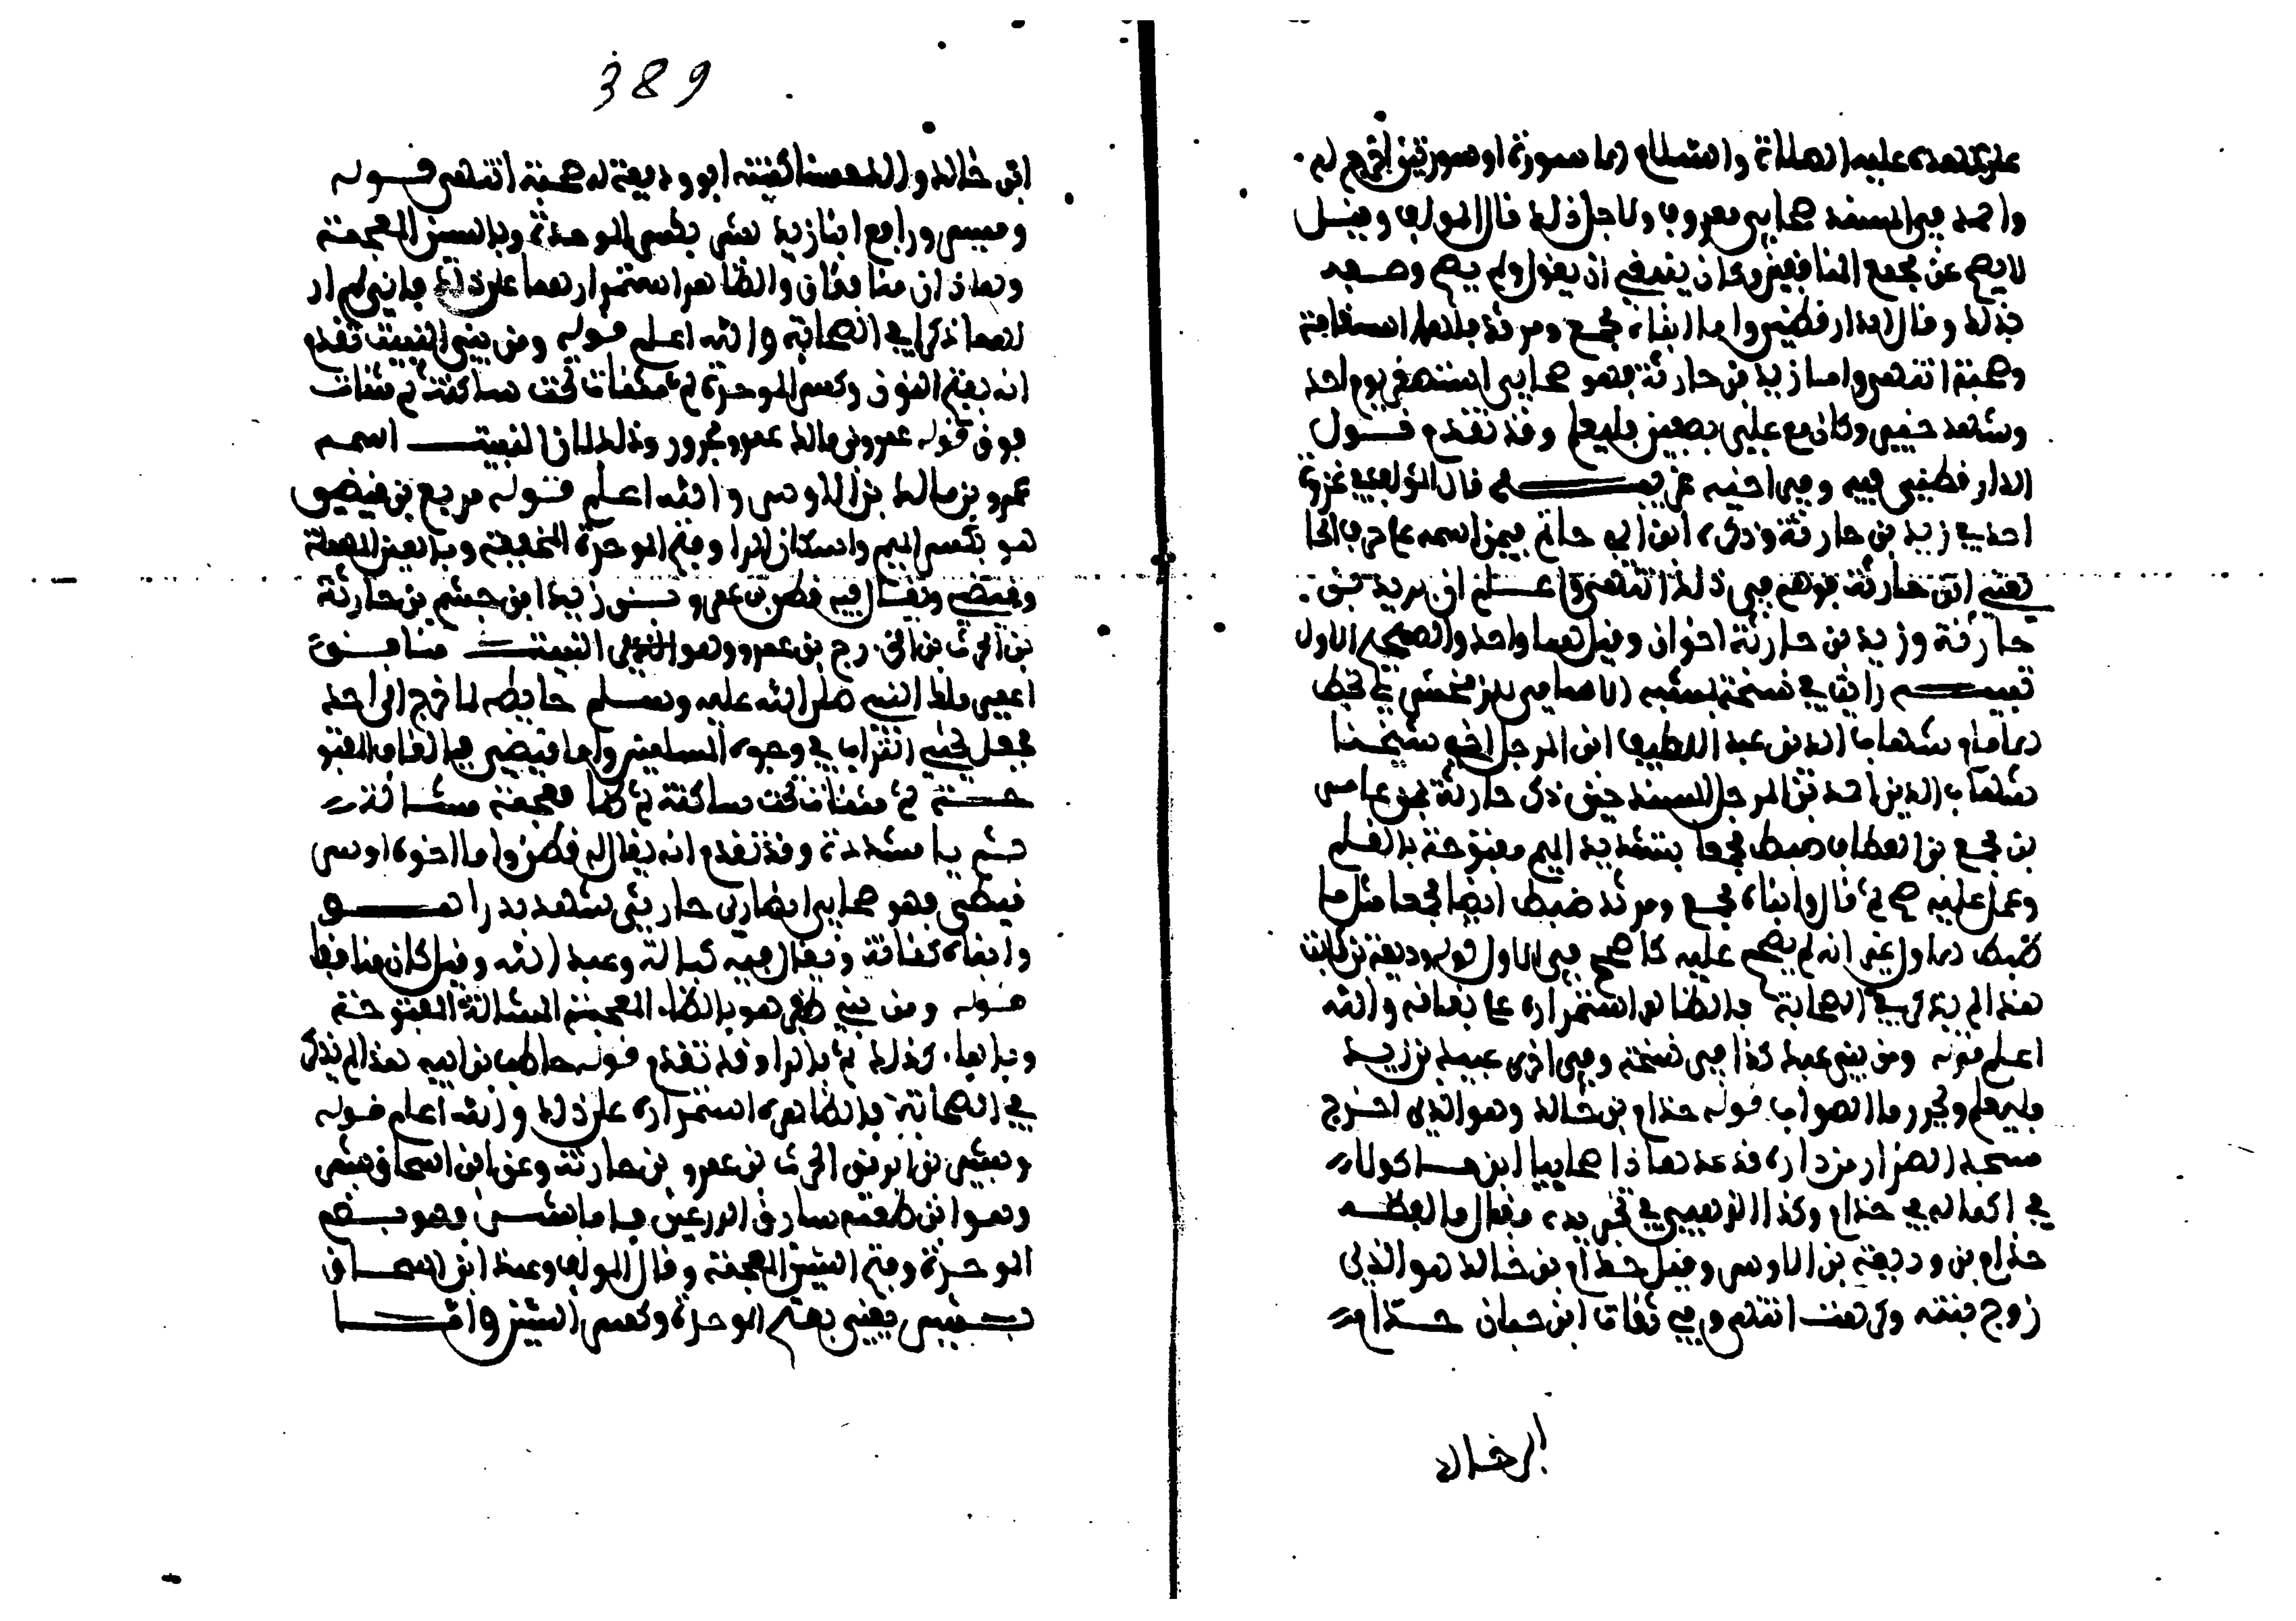 على عهده عليه الصلاة والسلام الا سورة او سورتين اخرج له
واحمد في المسند صحابي معروف ولاجل ذلك قال المولف وقيل
لا يصح عن مجمع النفاق وكان ينبغي ان يقول ولم يصح
كذلك وقال الدارقطني واما ابناه مجمع ومزيد فلهما استقامة
وصحبة انتهى واما زيد بن حارثة فهو صحابي استصغر يوم احد
وشهد خيبر وكان مع علي بصفين فليعلم وقد تقدم قول
الدارقطني فيه وفي اخيه عن قال المولف في غزوة
احد في زيد بن حارثة وذكره ابن ابي حاتم فيمن اسمه على حرف الخا
يعني ابن خارثة فوهم في ذلك انتهى واعلم ان يزيد بن
حارثة وزيد بن حارثة اخوان وقيل هما واحد والصحيح الاول
تنبيه رايت في نسخة الزمخشري بخط
الامام شهاب الدين عبد اللطيف ابن المرجل اخي شيخنا
شهاب الدين احمد بن المرجل المسند حين ذكر حارثة بن عامر
بن مجمع بن العطاف ضبط مجمعا بتشديد الميم مفتوحة بالقلم
وعمل عليه صح ثم قال وابناه مجمع ومزيد ضبط ايضا مجمعا مثل ما
ضبط الاول غير انه لم يصحح عليه كما صحح في الاول قوله وديعة بن ثابت
هذا لم يذكر في الصحابة فالظاهر استمراره على نفاقه والله
اعلم قوله ومن بني عبيد كذا في نسخة وفي اخرى عبيد بن زيد
فليعلم ويحرر ما الصواب قوله خذام بن خالد وهو الذي اخرج
مسجد الضرار من داره قد عد هذا صحابيا ابن ماكولا
في اكماله في خذام وكذا الذهبي في تجريده فقال ما لفظه
خذام بن وديعة بن الاوس وقيل خذام بن خالد هو الذي
زوج بنته وكرهت انتهى وفي ثقات ابن حبان خذام
ابن خالد
389
ابن خالد والد خنساء كنيته ابو وديعة له صحبة انتهى قوله
وبشير ورافع ابنا زيد بشر بكسر الموحدة وبالشين المعجمة
وهاذان منافقان والظاهر استمرارهما على ذلك فاني لم ار
لهما ذكرا في الصحابة والله اعلم قوله ومن بني النبيت تقدم
انه بفتح النون وكسر الموحدة ثم مثناة تحت ساكنة ثم مثناة
فوق قوله عمرو بن مالك عمرو مجرور وذلك لان النبيت اسمه
عمرو بن مالك بن الاوس والله اعلم قوله مربع بن قيظي
هو بكسر الميم واسكان الرا وفتح الموحدة المخففة وبالعين المهملة
وقيظي ويقال فيه قطن بن عمرو بن زيد ابن جشم بن حارثة
بن الحرث بن الخزرج بن عمرو وهو النبيت منافق
اعمى ملك النبي صلى الله عليه وسلم حايطه لما خرج الى احد
فجعل يحثي التراب في وجوه المسلمين واما قيظي فبالقاف المفتو
حة ثم مثناة تحت ساكنة ثم ظا معجمة مشالة
ثم يا مشددة وقد تقدم انه يقال له قطن واما اخوه اوس
قيظي فهو صحابي انصاري حارثي شهد بدرا هو
وابناه كنانة ويقال فيه كباثة وعبد الله وقيل كان منافقا
قوله ومن بني ظفر هو بالظاء المعجمة المشالة المفتوحة
وبالفاء كذلك ثم بالرا وقد تقدم قوله حاطب بن امية هذا لم يذكر
في الصحابة فالظاهر استمراره على ذلك والله اعلم قوله
وبشير بن ابيرق الحرث بن عمرو بن حارثة وعن ابن اسحاق بشر
وهو ابن طعمة سارق الدرعين فاما بشير فهو بضم
الموحدة وفتح الشين المعجمة وقال المولف وعند ابن اسحاق
بشير يعني بفتح الموحدة وكسر الشين واما